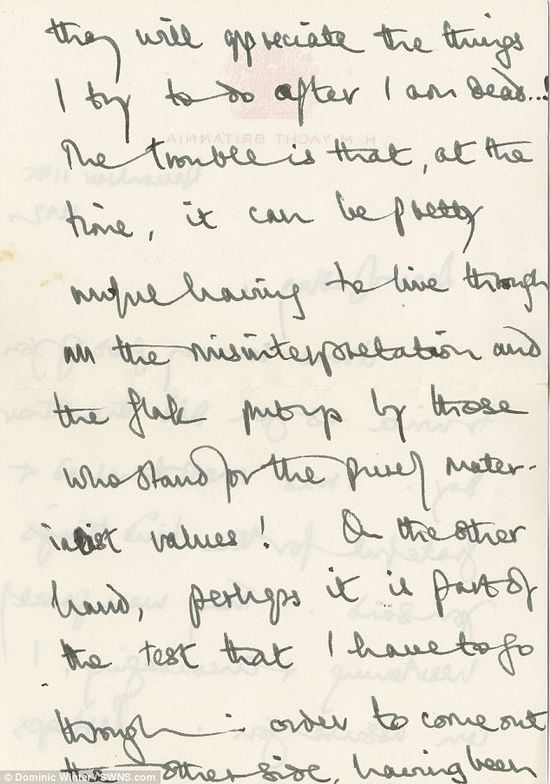 they will appreciate the things
I try to do after I am dead...!
The trouble is that, at the
time, it can be pretty
awful having to live through
all the misinterpretation and
the flak put up by those
who stand for the purely mater-
ialist values! On the other
hand, perhaps it is part of
the test that I have to go
through in order to come out
the other side, having been
H. M. YACHT BRITANNIA
© Dominic Winter/SWNS.com